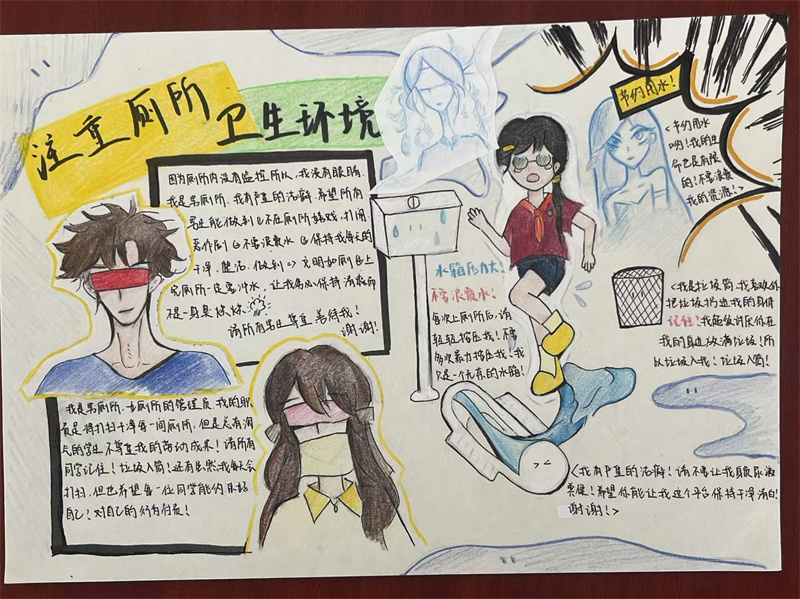 注重厕所
卫生环境
因为厕所内没有监控所以,我没有眼睛。
我是男厕所,我有严重的洁癖,希望所有
男生能做到①不在厕所嬉戏,打闹
恶作剧②不要浪费水③保持我每天的
干净,整洁,做到=>文明如厕④上
完厕所一定要冲水,让我身心保持清爽而
不是一身臭烘烘
请所有男生尊重善待我!
谢谢!
我是女厕所,女厕所的管理员 我的职
责是将打扫干净每一间厕所,但是总有调
皮的学生不尊重我的劳动成果!请所有
同学记住!垃圾入筒!还有虽然我每天会
打扫,但也希望每一位同学能约束好
自己!对自己的行为负责!
水箱压力大!
不要浪费水!
每次上厕所后,请
轻轻按压我!不要
多次暴力按压我!我
只是一个无辜的水箱!
节约用水!
<节约用水
哟!我的生
命也是有限
的!不要浪费
我的资源!>
<我是垃圾筒,我喜欢你
把垃圾扔进我的身体
记住!我超级讨厌你在
我的身边放满垃圾!所
以垃圾入我!垃圾入筒!
<我有严重的洁癖!请不要让我眼尿液
粪便!希望你能让我这个平台保持干净清白!
谢谢!>